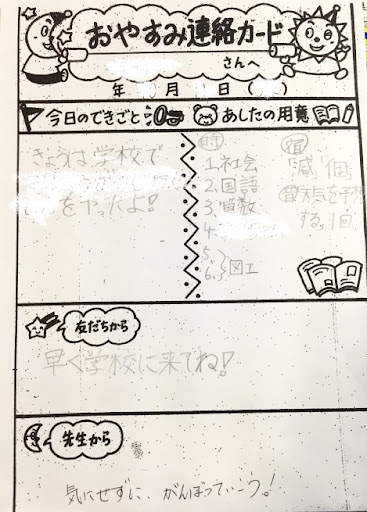 おやすみ連絡カード
さんへ
年 月 日( )
今日のできごと
あしたの用意
きょうは学校で
をやったよ!
時
1.社会
2.国語
3.算数
4.
5.
6.}図工
宿
「減」「個」
音 天気を予想
する。1回
友だちから
早く学校に来てね!
先生から
気にせずに、がんばっていこう!